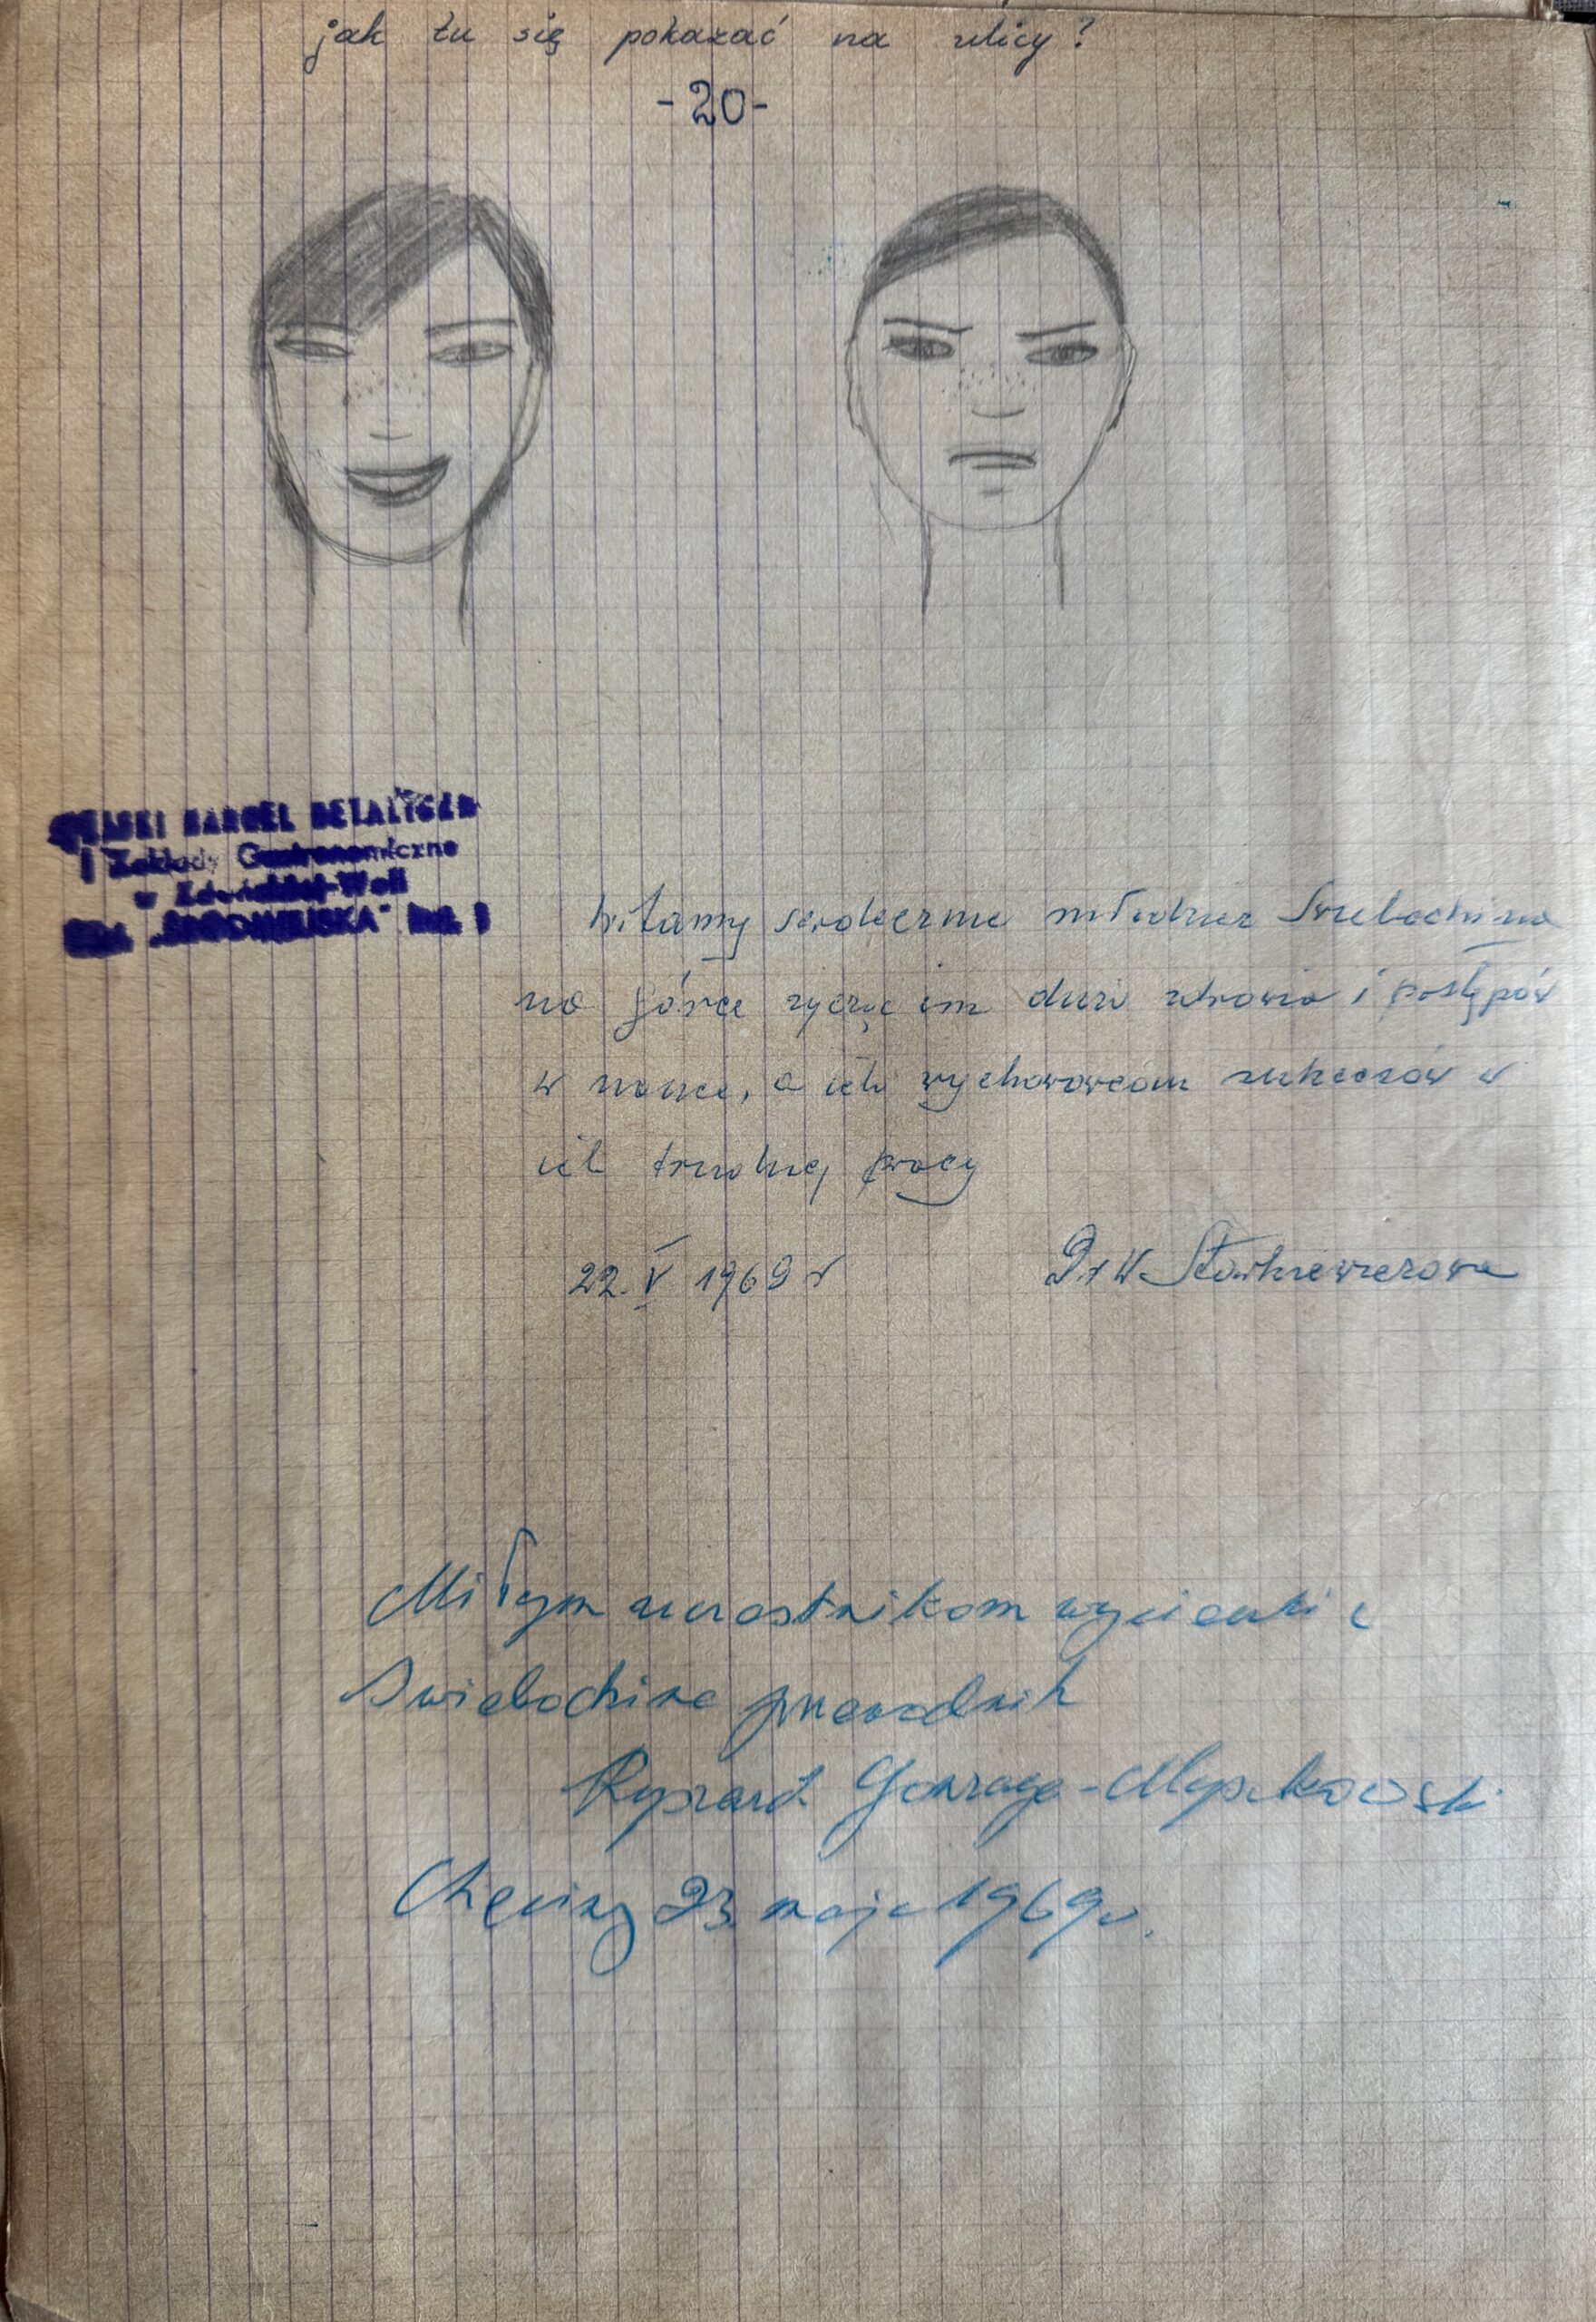 jak tu się pokazać na ulicy?
-20-
MIEJSKI HANDEL DETALICZNY
i Zakłady Gastronomiczne
w Zduńskiej-Woli
"ŚRÓDMIEJSKA"
Witamy serdecznie młodzież Świebodzina
na górce życząc im dużo zdrowia i postępów
w nauce, a ich wychowawcom sukcesów w
ich trudnej pracy
22. V 1969 r
Dr W.
Miłym uczestnikom wycieczki z
Świebodzina przewodnik
Ryszard Gonzaga-Myszkowski
Chęciny 23 maja 1969 r.